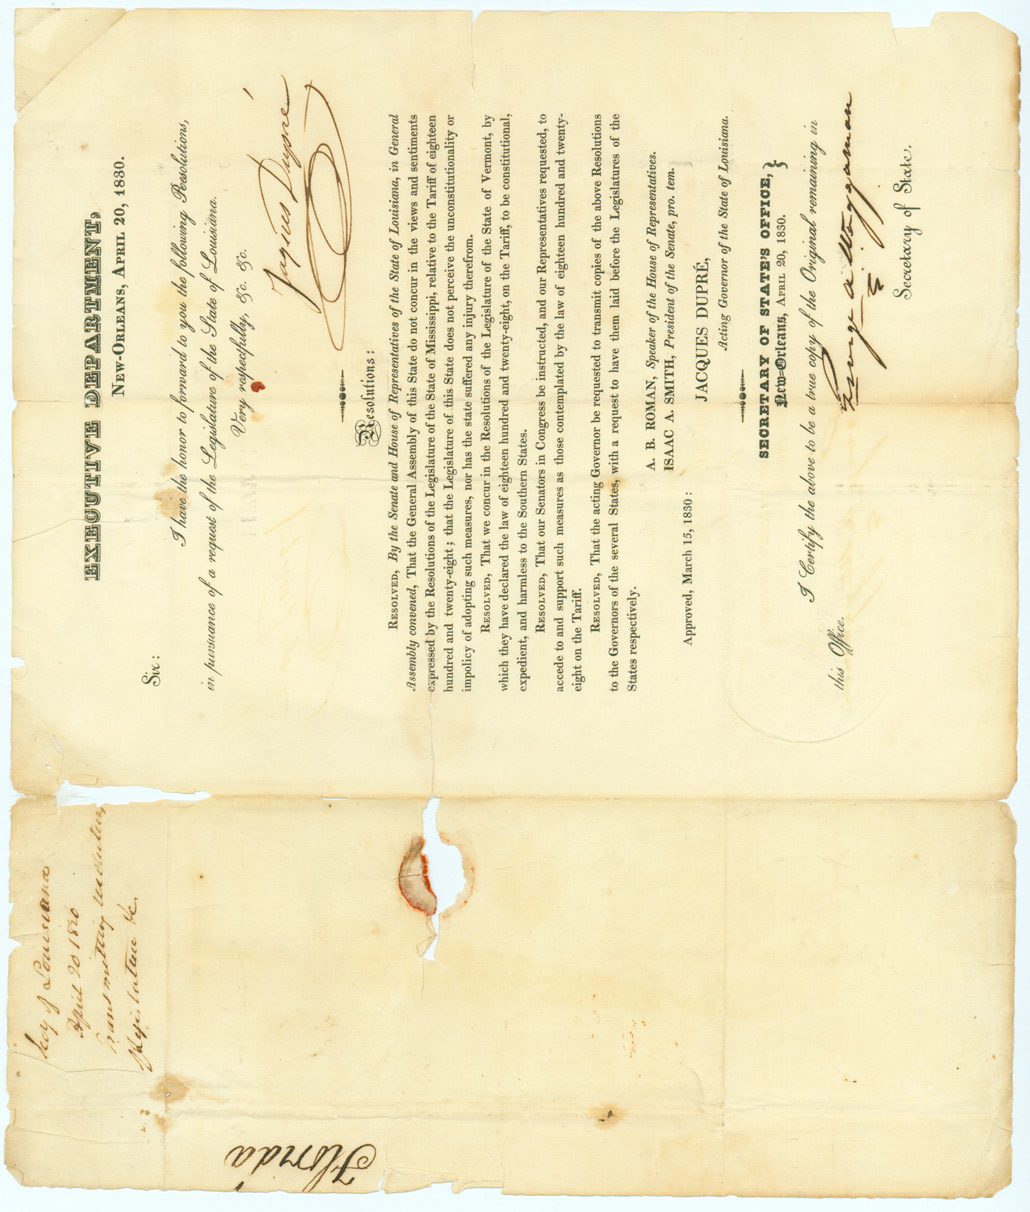 EXECUTIVE DEPARTMENT,
NEW-ORLEANS, APRIL 20, 1830.
Sir:
I have the honor to forward to you the following Resolutions,
in pursuance of a request of the Legislature of the State of Louisiana.
Very respectfully, &c. &c.
Jaques Dupré
Resolutions:
RESOLVED, By the Senate and House of Representatives of the State of Louisiana, in General
Assembly convened, That the General Assembly of this State do not concur in the views and sentiments
expressed by the Resolutions of the Legislature of the State of Mississippi, relative to the Tariff of eighteen
hundred and twenty-eight; that the Legislature of this State does not perceive the unconstitutionality or
impolicy of adopting such measures, nor has the state suffered any injury therefrom.
RESOLVED, That we concur in the Resolutions of the Legislature of the State of Vermont, by
which they have declared the law of eighteen hundred and twenty-eight, on the Tariff, to be constitutional,
expedient, and harmless to the Southern States.
RESOLVED, That our Senators in Congress be instructed, and our Representatives requested, to
accede to and support such measures as those contemplated by the law of eighteen hundred and twenty-
eight on the Tariff.
RESOLVED, That the acting Governor be requested to transmit copies of the above Resolutions
to the Governors of the several States, with a request to have them laid before the Legislatures of the
States respectively.
A. B. ROMAN, Speaker of the House of Representatives.
ISAAC A. SMITH, President of the Senate, pro. tem.
Approved, March 15, 1830:
JACQUES DUPRÉ,
Acting Governor of the State of Louisiana.
SECRETARY OF STATE'S OFFICE,
New=Orleans, APRIL 20, 1830.
I Certify the above to be a true copy of the Original remaining in
this Office.
George A Waggaman
Secretary of State.
of Louisiana
April 20 1830
Transmitting
Legislature &c.
Florida